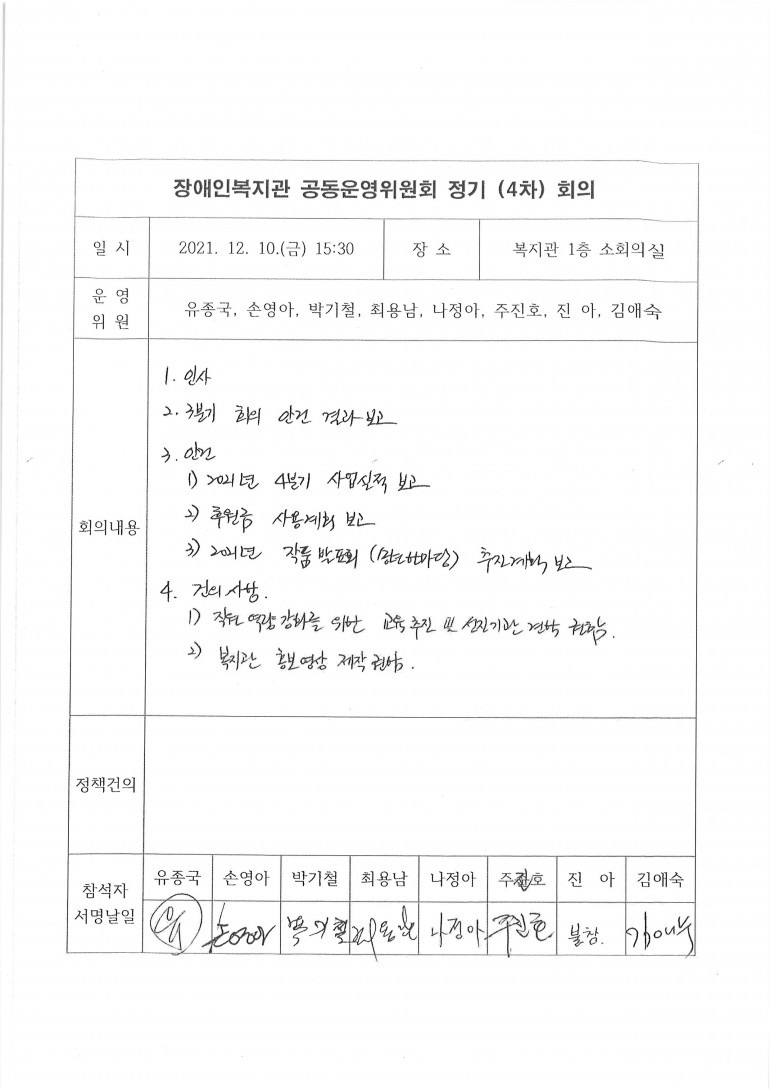 장애인복지관 공동운영위원회 정기 (4차) 회의
일 시 2021. 12. 10.(금) 15:30 장 소 복지관 1층 소회의실
운 영
위 원
유종국, 손영아, 박기철, 최용남, 나정아, 주진호, 진 아, 김애숙
회의내용
1. 인사
2. 3분기 회의 안건 결과보고
3. 안건
1) 2021년 4분기 사업실적 보고
2) 후원금 사용계획 보고
3) 2021년 작품발표회 추진계획 보고
4. 건의사항.
1) 직원 역량강화를 위한 교육추진 및 선진기관 견학
2) 복지관 홍보영상 제작
정책건의
참석자
서명날일
유종국 손영아 박기철 최용남 나정아 주진호 진 아 김애숙
손영아 박기철 최용남 나정아 주진호 불참. 김애숙